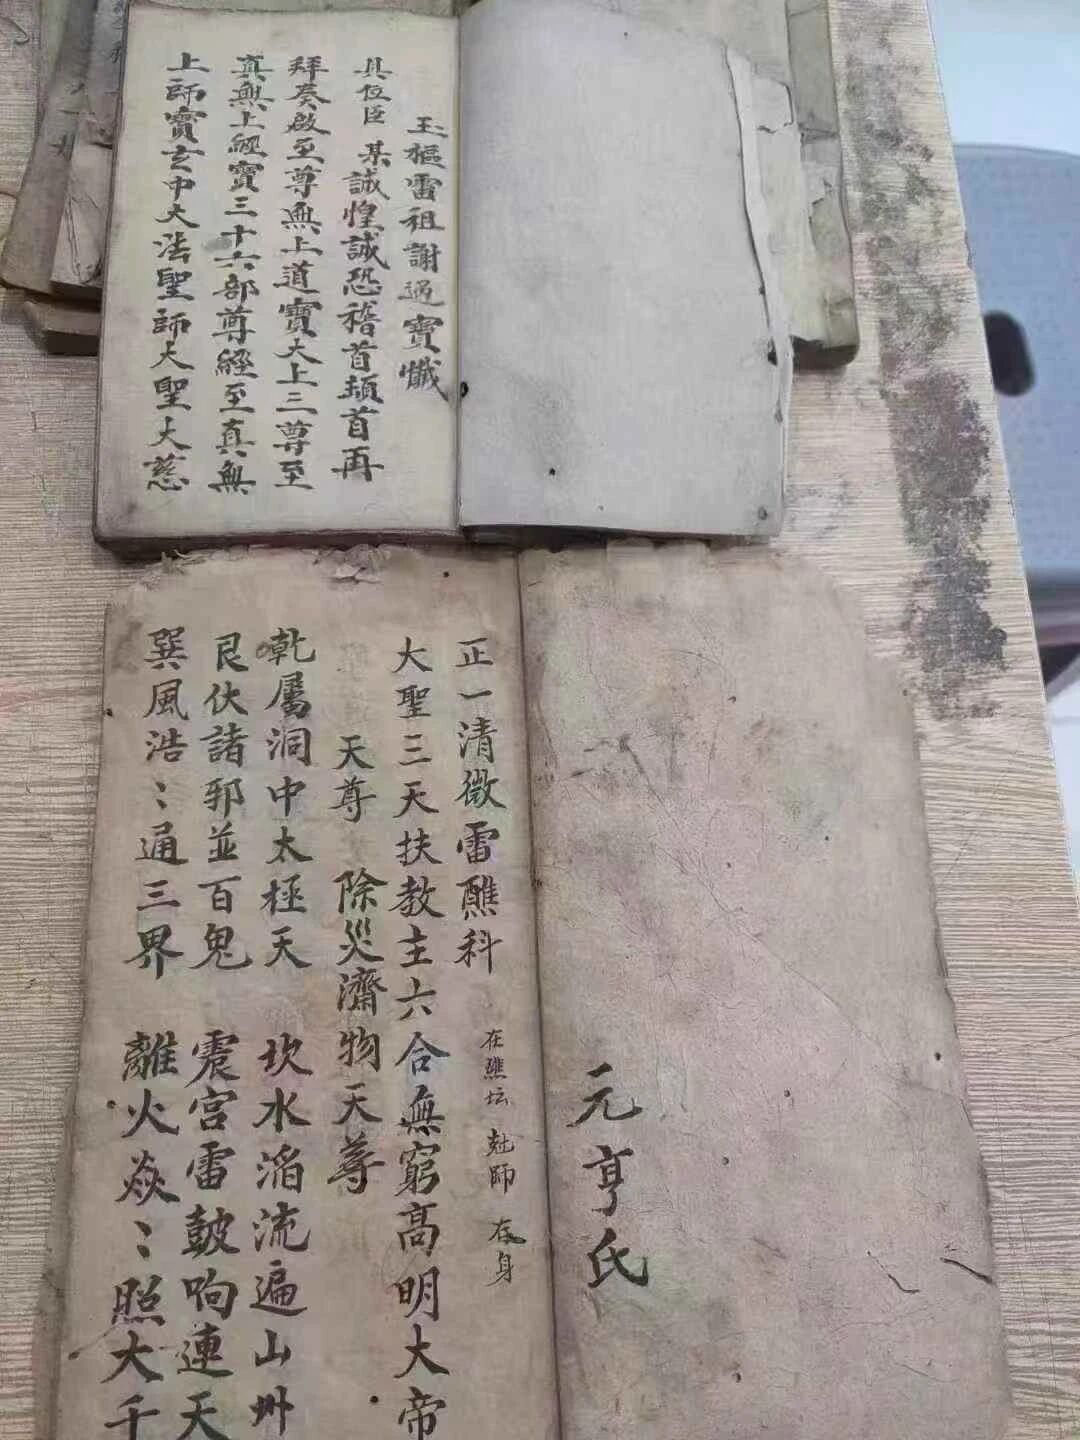 玉樞雷祖謝過寶懺
具位臣 某誠惶誠恐稽首頓首再
拜奏啟至尊無上道寶大上三尊至
真無上經寶三十六部尊經至真無
上師寶玄中大法聖師大聖大慈
元亨氏
正一清微雷醮科 在醮坛 師 存身
大聖三天扶教主六合無窮高明大帝
天尊 除災濟物天尊
乾屬洞中太極天 坎水滔流遍山州
艮伏諸邪並百鬼 震宮雷皷响連天
巽風浩〻通三界 離火焱〻照大千